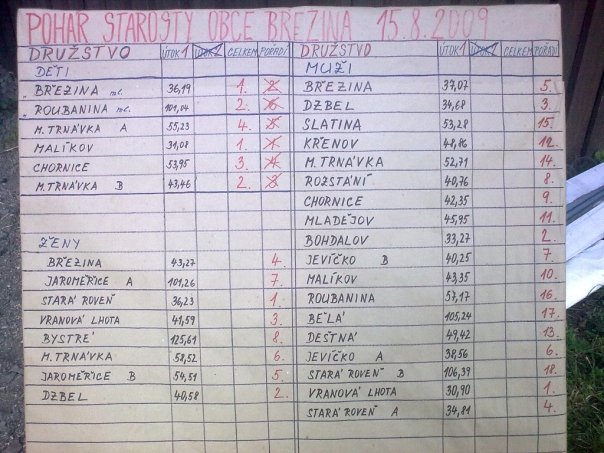 POHAR STAROSTY OBCE BŘEZINA 15.8.2009
DRUŽSTVO ÚTOK 1 ÚTOK 2 CELKEM POŘADÍ
DĚTI
„BŘEZINA ml. 36,19 1. 2.
„ROUBANINA ml. 101,04 2. 6.
M. TRNÁVKA A 55,23 4. 5.
MALÍKOV 31,08 1. 1.
CHORNICE 53,95 3. 4.
M. TRNÁVKA B 43,46 2. 3.
ŽENY
BŘEZINA 43,27 4.
JAROMĚŘICE A 101,26 7.
STARÁ ROVEŇ 36,23 1.
VRANOVÁ LHOTA 41,59 3.
BYSTRÉ 125,61 8.
M. TRNÁVKA 58,52 6.
JAROMĚŘICE B 54,51 5.
DZBEL 40,58 2.
DRUŽSTVO ÚTOK 1 ÚTOK 2 CELKEM POŘADÍ
MUŽI
BŘEZINA 37,07 5.
DZBEL 34,68 3.
SLATINA 53,28 15.
KŘENOV 48,86 12.
M. TRNÁVKA 52,71 14.
ROZSTÁNÍ 40,76 8.
CHORNICE 42,35 9.
MLADĚJOV 45,95 11.
BOHDALOV 33,27 2.
JEVÍČKO B 40,25 7.
MALÍKOV 43,35 10.
ROUBANINA 57,17 16.
BĚLÁ 105,24 17.
DEŠTNÁ 49,42 13.
JEVÍČKO A 38,56 6.
STARÁ ROVEŇ B 106,39 18.
VRANOVÁ LHOTA 30,90 1.
STARÁ ROVEŇ A 34,81 4.